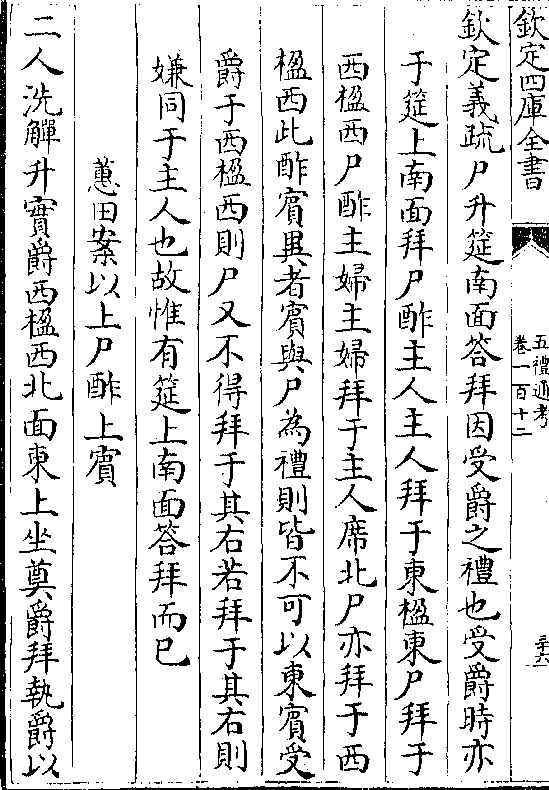 欽定四庫全書
五禮通考
卷一百十二
三十六
欽定義疏尸升筵南面答拜因受爵之禮也受爵時亦
于筵上南面拜尸酢主人主人拜于東楹東尸拜于
西楹西尸酢主婦主婦拜于主人席北尸亦拜于西
楹西此酢賓異者賓與尸為禮則皆不可以東賓受
爵于西楹西則尸又不得拜于其右若拜于其右則
嫌同于主人也故惟有筵上南面答拜而已
蕙田案以上尸酢上賓
二人洗觶升實爵西楹西北面東上坐奠爵拜執爵以